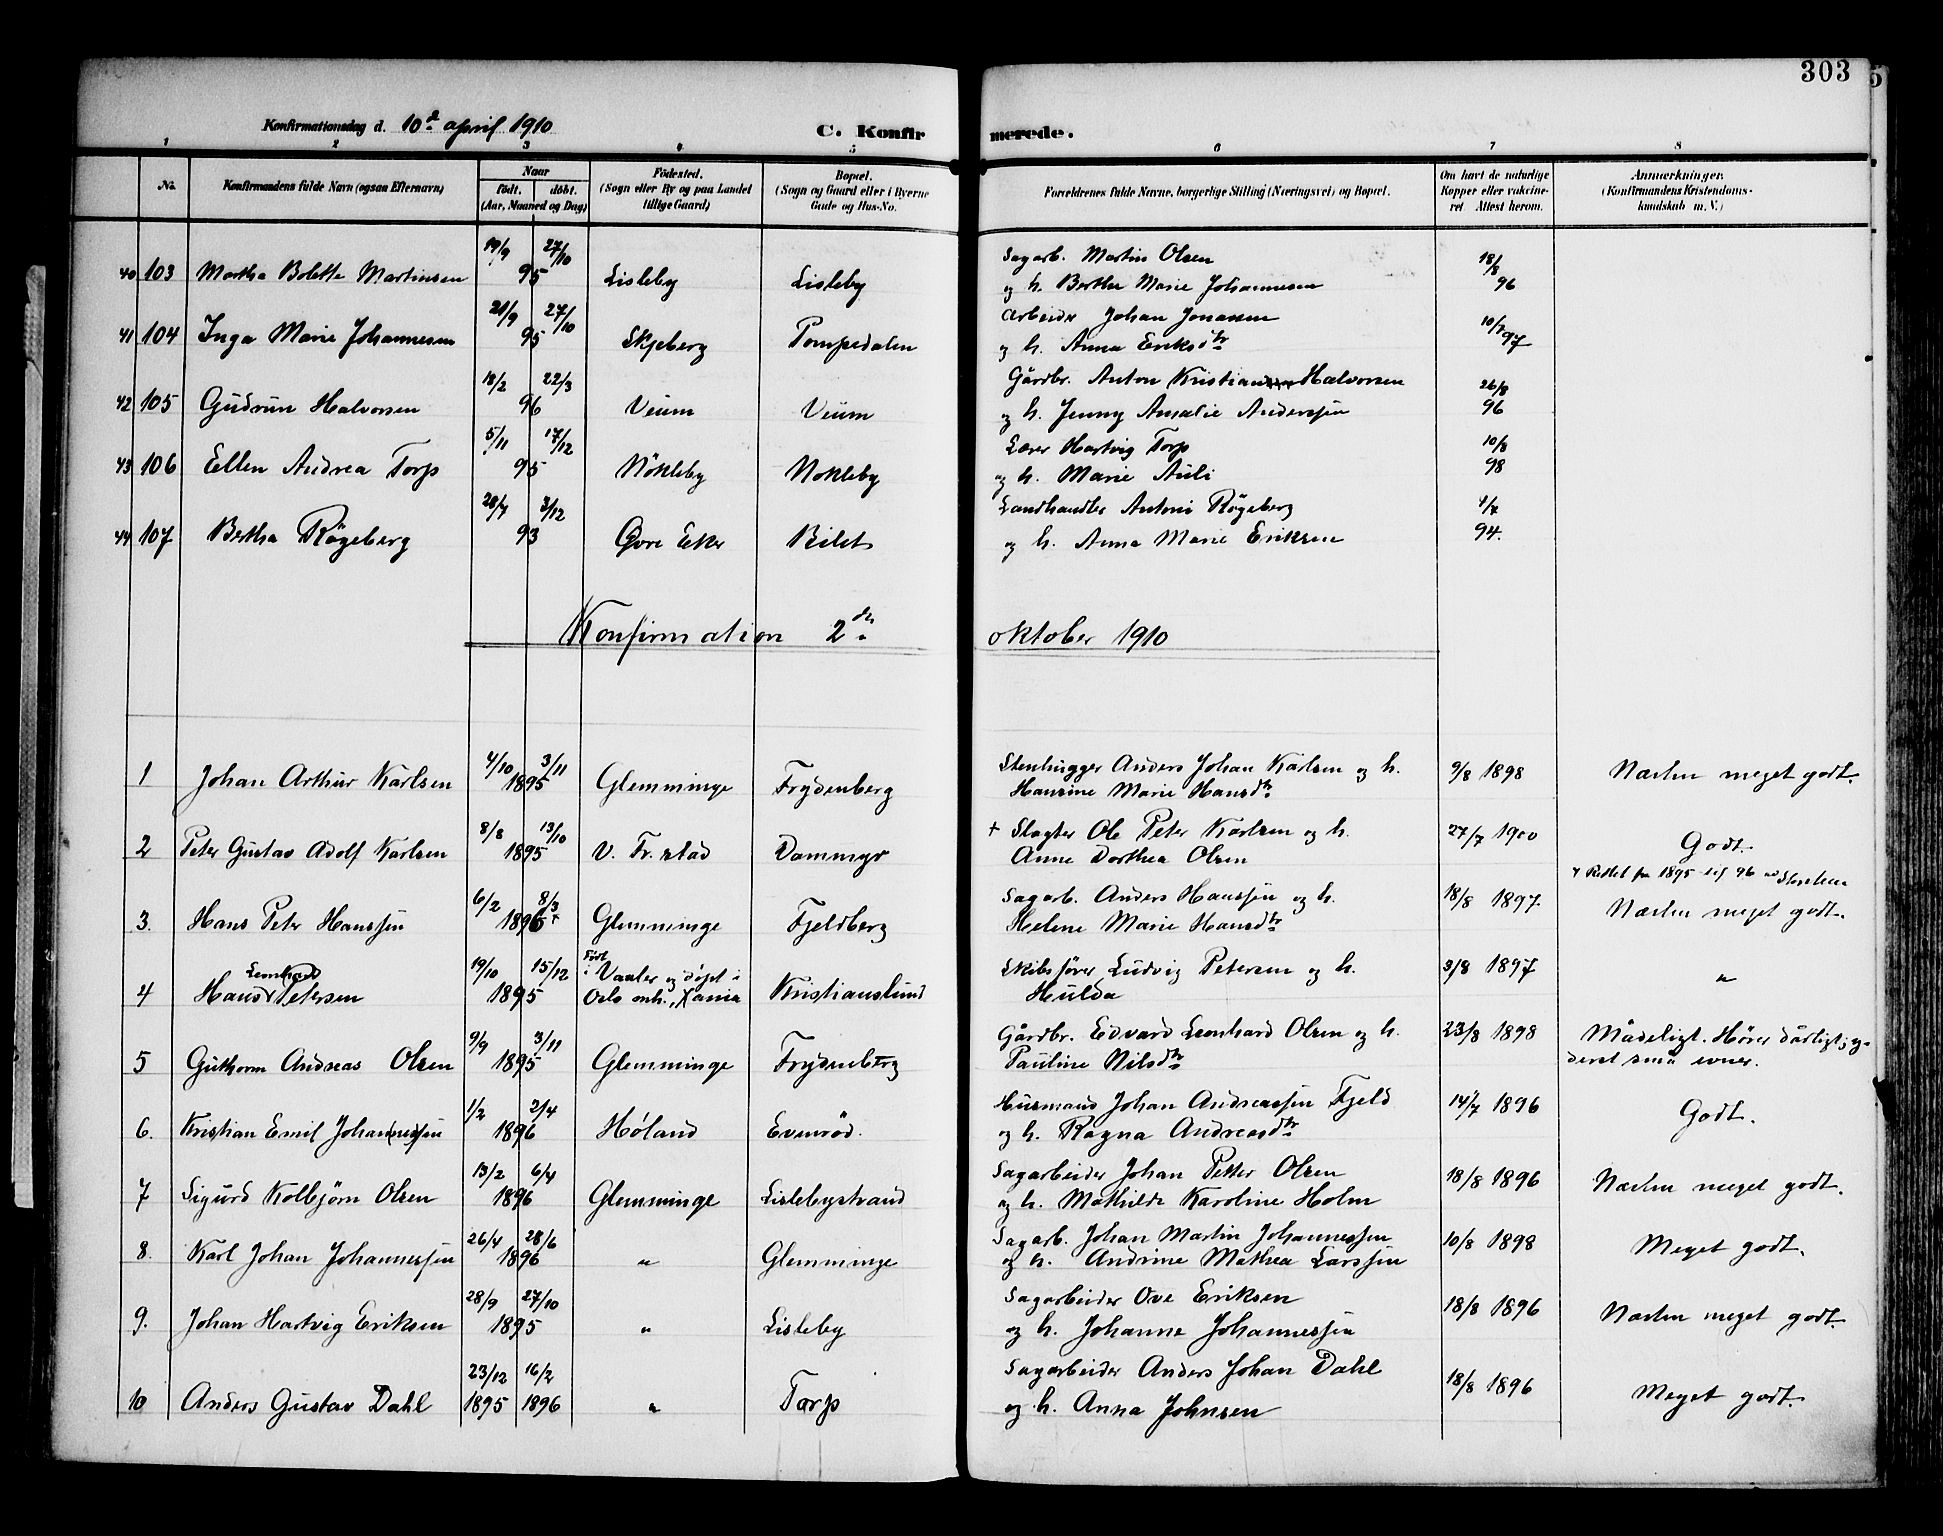 303
Konfirmationsdag d. 10de april 1910
C. Konfirmerede.
1 2 3 4 5 6 7 8
No. Konfirmandens fulde Navn (ogsaa Efternavn) Naar født. døbt. (Aar, Maaned og Dag) Fødested. (Sogn eller By og paa Landet tillige Gaard) Bopæl. (Sogn og Gaard eller i Byerne Gade og Hus-No. Forældrenes fulde Navne, borgerlige Stilling (Næringsvei) og Bopæl. Om havt de naturlige Kopper eller vakcineret. Attest herom. Anmærkninger. (Konfirmandens Kristendomskundskab m. V.)
40 103 Martha Bolette Martinsen 19/9 27/10 95 Lisleby Lisleby Sagarb. Martin Olsen 18/8 96
og h. Berthe Marie Johannesen
41 104 Inga Marie Johannesen 21/9 27/10 95 Skjeberg Pompedalen Arbeider Johan Jonassen 10/7 97
og h. Anna Eriksdtr
42 105 Gudrun Halvorsen 18/2 22/3 96 Veum Veum Gårdbr. Anton Kristian Halvorsen 26/8 96
og h. Jenny Amalie Anderssen
43 106 Ellen Andrea Torp 5/11 17/12 95 Nökleby Nokleby Lærer Hartvig Torp 10/8 98
og h. Marie Auli
44 107 Bertha Rögeberg 20/7 3/12 93 Øvre Eker Bilet Landhandler Antoni Rögeberg 1/7 94.
og h. Anna Marie Eriksen
Konfirmation 2den oktober 1910
1 Johan Arthur Karlsen 4/10 3/11 1895 Glemminge Frydenberg Stenhugger Anders Johan Karlsen og h. 9/8 1898 Næsten meget godt.
Hansine Marie Hansdtr
2 Peter Gustav Adolf Karlsen 8/8 13/10 1895 V. Fr.stad Dammyr + Slagter Ole Peter Karlsen og h. 27/7 1900 Godt.
Anne Dorthea Olsen
+ Rettet fra 1895 til 96
3. Hans Peter Hanssen 6/2 8/3 1896+ Glemminge Fjeldberg Sagarb. Anders Hanssen og h. 18/8 1897. Næsten meget godt.
Helene Marie Hansdtr
4 Hans Leonhard Petersen 19/10 15/12 1895 Født i Vaaler og døpt i Oslo mh., Xania Kristianslund Skibsfører Ludvig Petersen og h. 3/8 1897 "
Hulda
5 Guthorm Andreas Olsen 9/9 3/11 1895 Glemminge Frydenberg Gårdbr. Edvard Leonhard Olsen og h. 23/8 1898 Mådeligt. Hører dårligt, og-
Pauline Nilsdtr deret små evner.
6. Kristian Emil Johannessen 1/2 2/4 1896 Høland Evenröd. Husmand Johan Andreassen Fjeld 14/7 1896 Godt.
og h. Ragna Andreasdtr
7 Sigurd Kolbjörn Olsen 13/2 6/4 1896 Glemminge Lislebystrand Sagarbeider Johan Petter Olsen 18/8 1896 Næsten meget godt.
og h. Mathilde Karoline Holm
8. Karl Johan Johannessen 26/4 28/6 1896 " Glemminge Sagarb. Johan Martin Johannessen 10/8 1898 Meget godt.
og h. Andrine Mathea Larssen
9. Johan Hartvig Eriksen 28/9 27/10 1895 " Lisleby Sagarbeider Ove Eriksen 18/8 1896 Næsten meget godt.
og h. Johanne Johannessen
10 Anders Gustav Dahl 23/12 1895 16/2 1896 " Torp Sagarbeider Anders Johan Dahl 18/8 1896 Meget godt.
og h. Anna Johnsen